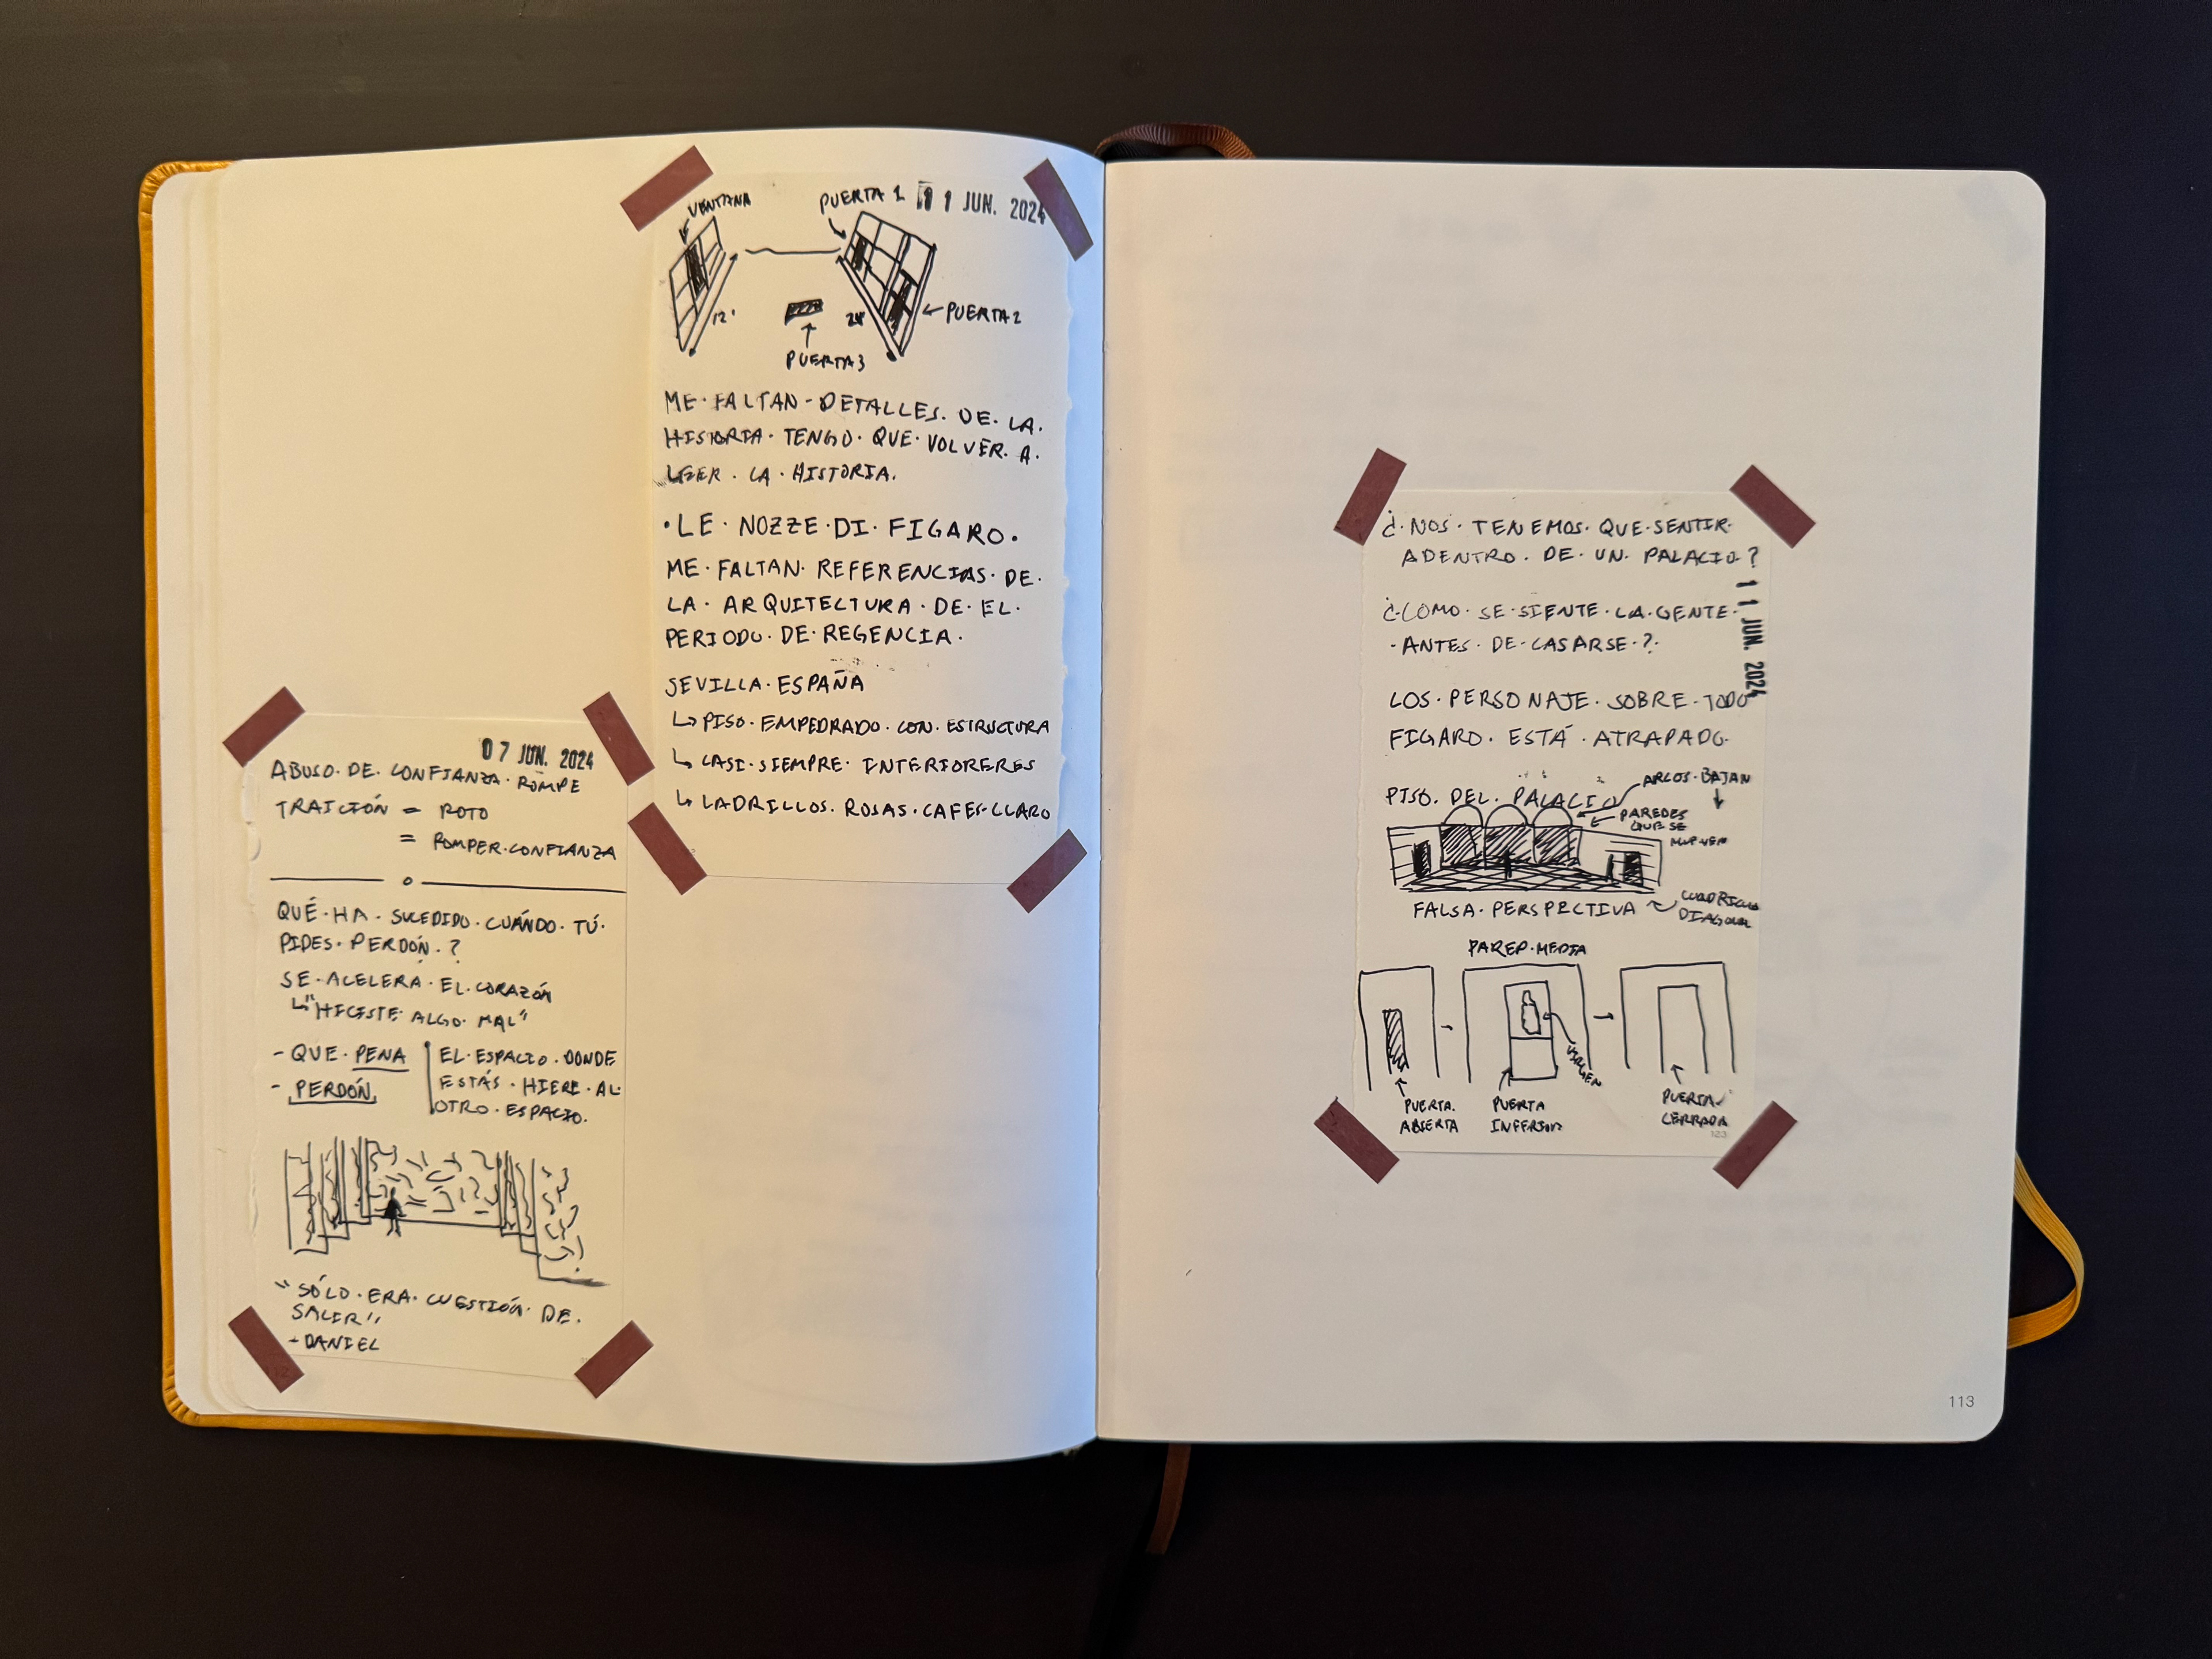 07 JUN. 2024
ABUSO·DE·CONFIANZA·ROMPE
TRAICIÓN = ROTO
= ROMPER·CONFIANZA
QUÉ·HA·SUCEDIDO·CUÁNDO·TÚ·
PIDES·PERDÓN·?
SE·ACELERA·EL·CORAZÓN
↳"HICISTE·ALGO·MAL"
- QUE·PENA
- PERDÓN
EL·ESPACIO·DONDE
ESTÁS·HIERE·AL·
OTRO·ESPACIO.
"SÓLO·ERA·CUESTIÓN·DE·
SALIR"
-DANIEL
VENTANA
PUERTA 1
11 JUN. 2024
12'
24'
PUERTA 2
PUERTA 3
ME·FALTAN-DETALLES·DE·LA·
HISTORIA·TENGO·QUE·VOLVER·A·
LEER·LA·HISTORIA.
·LE·NOZZE·DI·FIGARO·
ME·FALTAN·REFERENCIAS·DE·
LA·ARQUITECTURA·DE·EL·
PERIODO·DE·REGENCIA·
SEVILLA·ESPAÑA
↳ PISO·EMPEDRADO·CON·ESTRUCTURA
↳ CASI·SIEMPRE·INTERIORERES
↳ LADRILLOS·ROSAS·CAFES·CLARO
¿·NOS·TENEMOS·QUE·SENTIR·
ADENTRO·DE·UN·PALACIO?
11 JUN. 2024
¿·COMO·SE·SIENTE·LA·GENTE·
·ANTES·DE·CASARSE·?·
LOS·PERSONAJE·SOBRE·TODO
FIGARO·ESTÁ·ATRAPADO·
ARCOS·BAJAN
PISO·DEL·PALACIO
PAREDES
QUE·SE
MUEVEN
FALSA·PERSPECTIVA
CUADRICULA
DIAGONAL
PARED·MEDIA
VIRGEN
PUERTA·
ABIERTA
PUERTA
INFERIOR
PUERTA
CERRADA
123
113